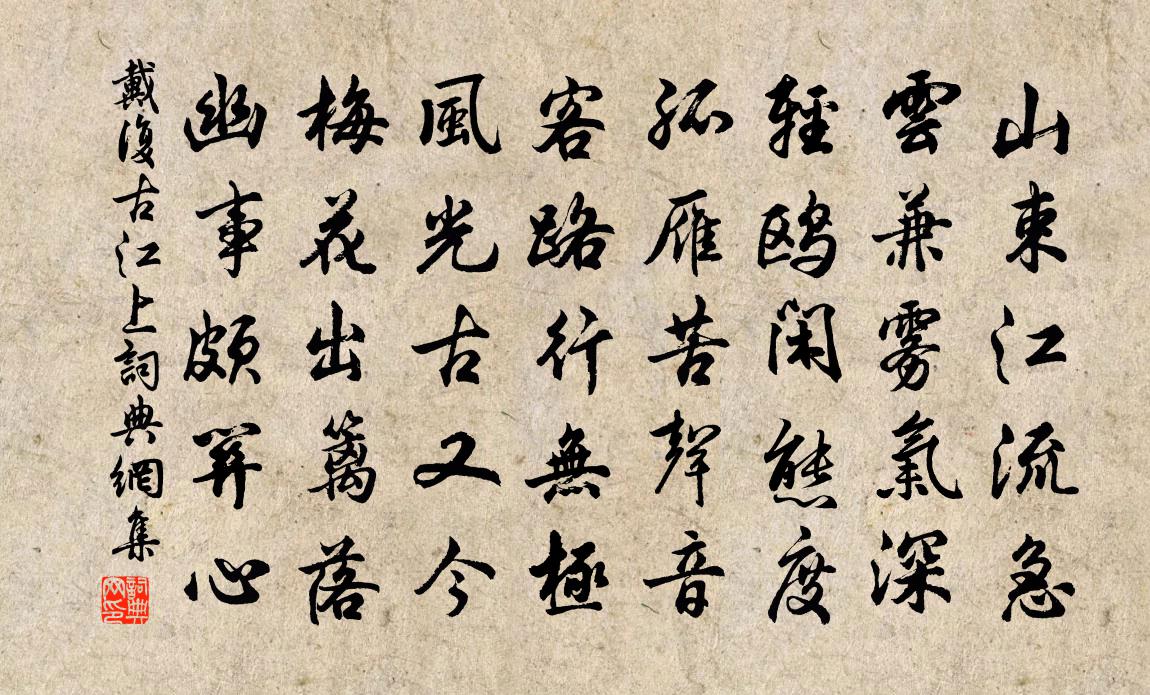 山束江流急
雲兼霧氣深
輕鷗閑態度
孤雁苦聲音
客路行無極
風光古又今
梅花出籬落
幽事頗關心
戴復古江上詞典網集
詞典網印